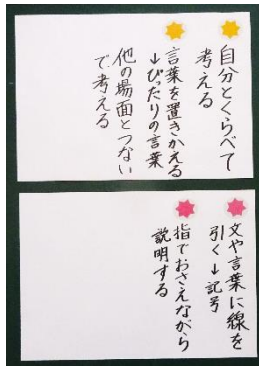 自分とくらべて
考える
言葉を置きかえる
↓ぴったりの言葉
他の場面とつない
で考える
文や言葉に線を
引く↓記号
指でおさえながら
説明する